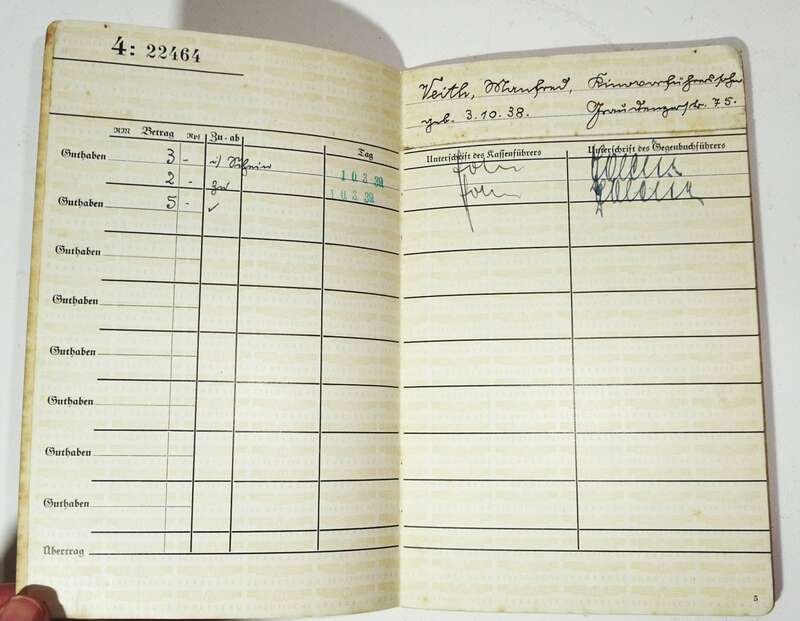 4: 22464
RM Betrag Rpf Zu-ab Tag
Guthaben 3 - Schein 10.3.39
2 - zu 10.3.39
Guthaben 5 -
Guthaben
Guthaben
Guthaben
Guthaben
Guthaben
Guthaben
Übertrag
Veith, Manfred, Kinovorführerssohn
geb. 3.10.38. Graudenzerstr. 75.
Unterschrift des Kassenführers Unterschrift des Gegenbuchführers
5